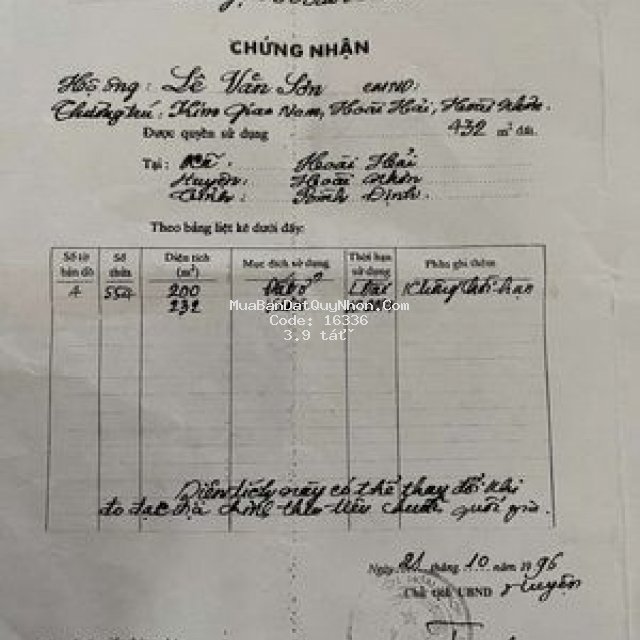 CHỨNG NHẬN
Hộ ông: Lê Văn Sơn CMND:
Thường trú: Kim Giao Nam, Hoài Hải, Hoài Nhơn
Được quyền sử dụng 432 m² đất.
Tại: Xã: Hoài Hải
Huyện: Hoài Nhơn
Tỉnh: Bình Định.
Theo bảng liệt kê dưới đây:
Số tờ bản đồ Số thửa Diện tích (m²) Mục đích sử dụng Thời hạn sử dụng Phần ghi thêm
4 554 200 Đất ở Lâu
232
MuaBanDatQuyNhon.Com
Code: 16336
3.9 tất
Diện tích này có thể thay đổi khi
đo đạc địa chính theo tiêu chuẩn quốc gia.
Ngày 21 tháng 10 năm 1996
Chủ tịch UBND Huyện